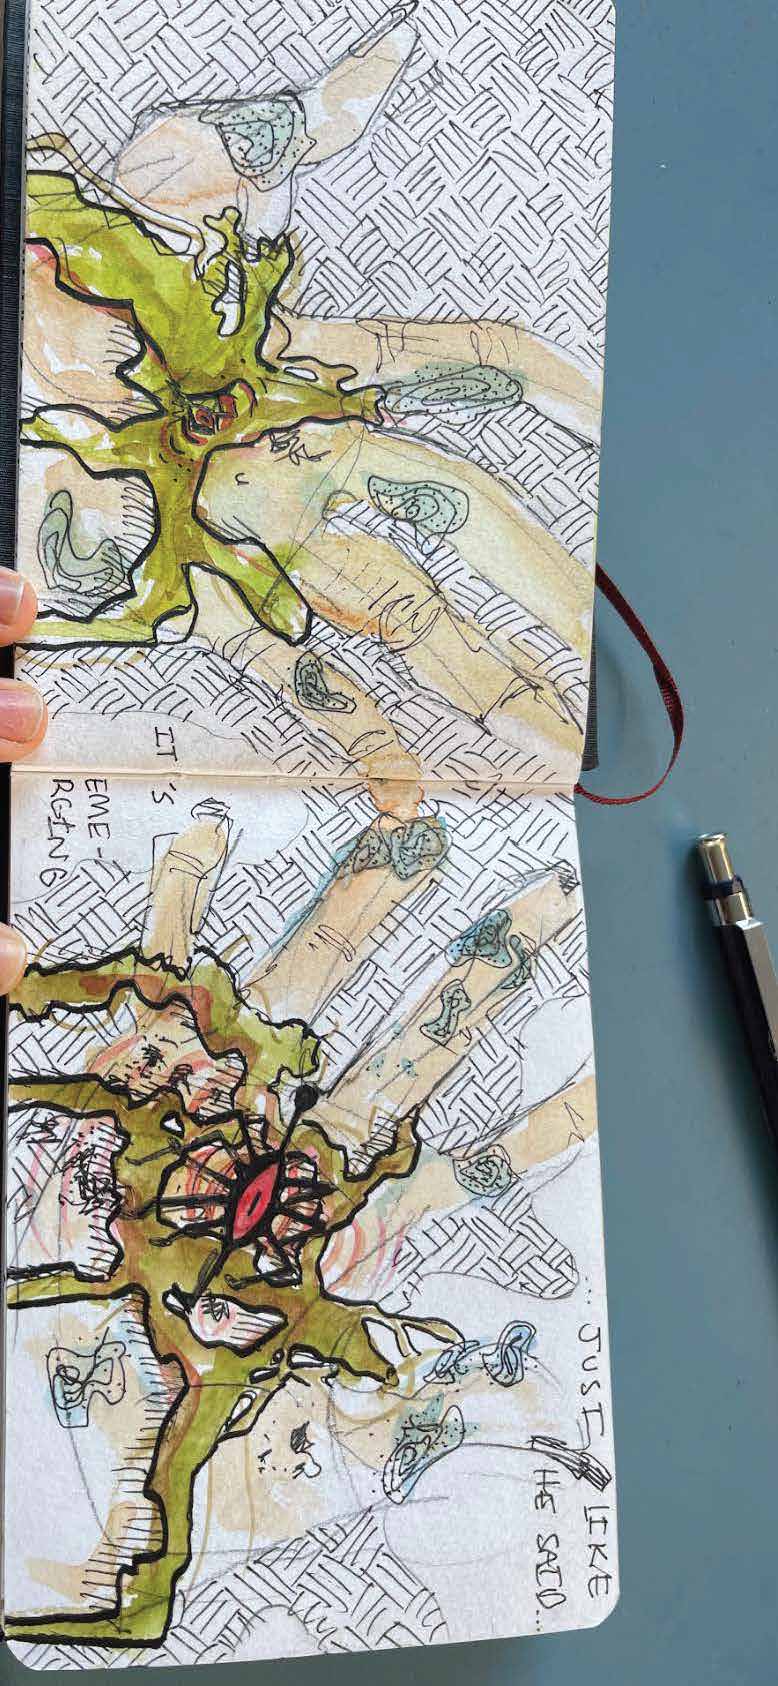 IT'S
EME-
RGING
...JUST LIKE
HE SAID...